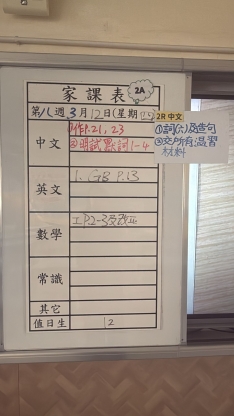 家課表 2A
第八週 3月12日(星期四)
中文
①作P.21, 23
②明試默詞1-4
2R 中文
①詞(六)及造句
②交所有溫習
材料
英文
1. GB P.13
數學
工P2-3及改正
常識
其它
值日生
12